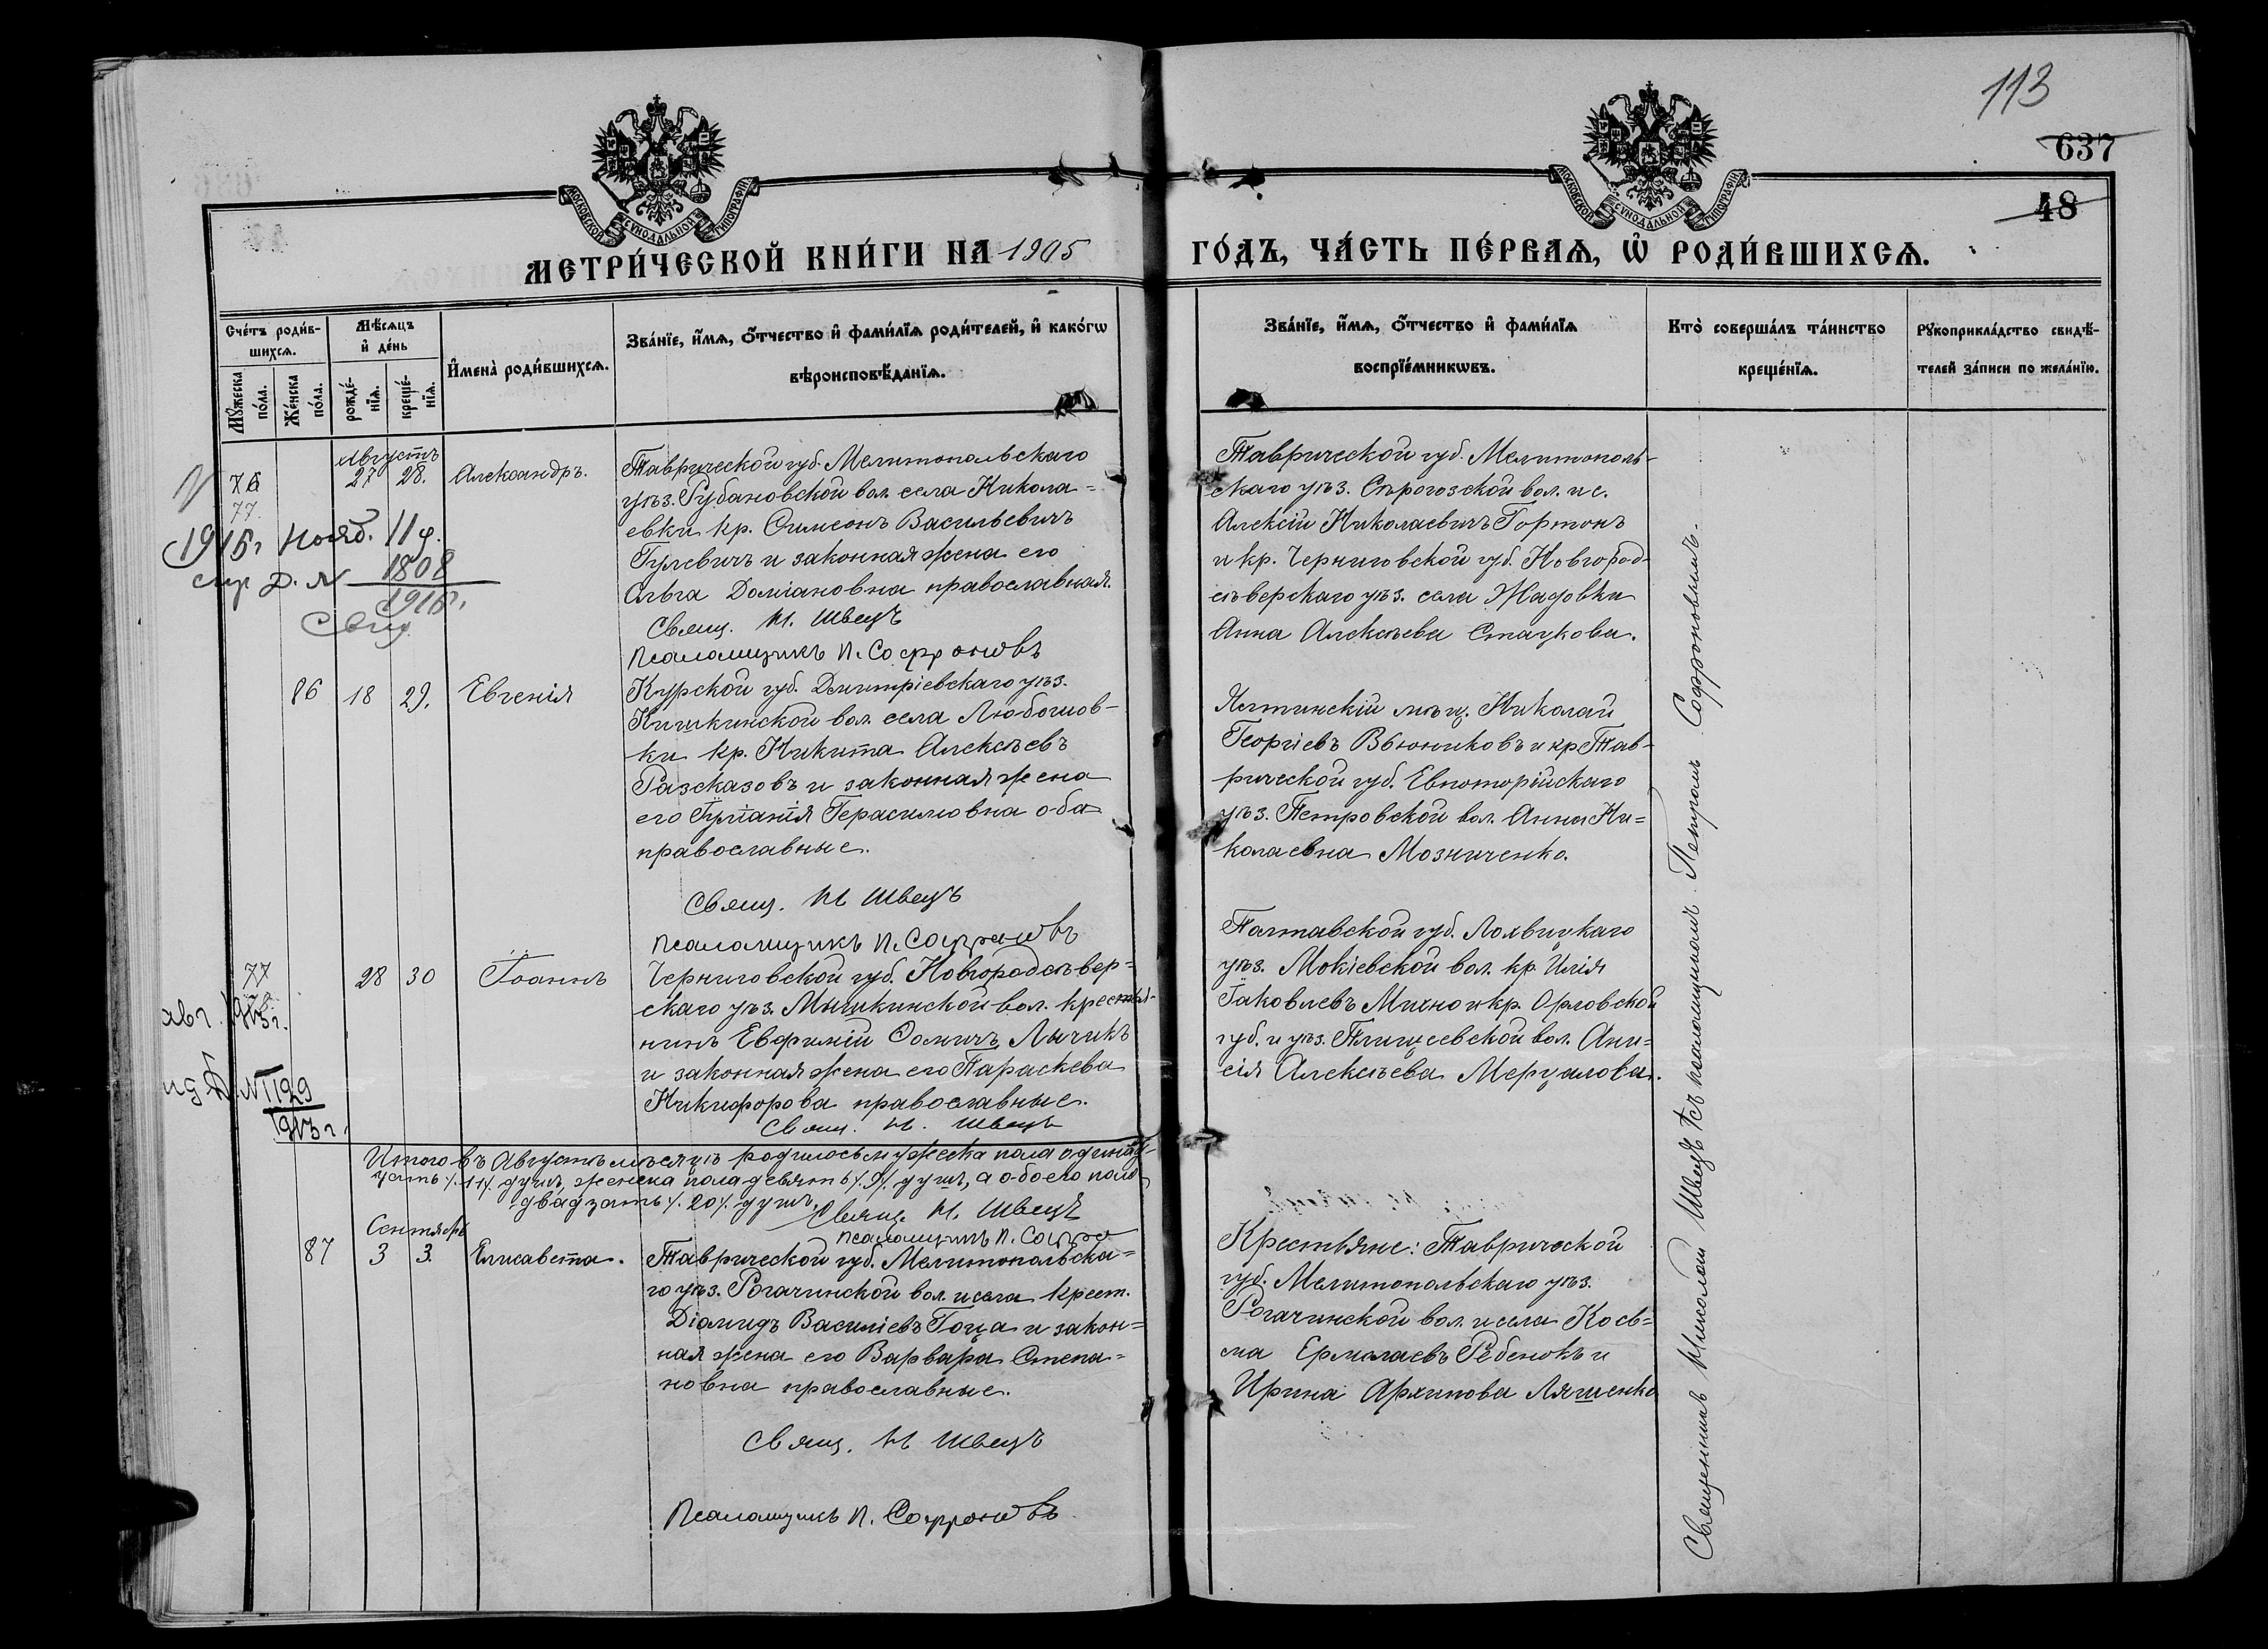 113
637
48
МОСКОВСКОЙ СѴНОДАЛЬНОЙ ТИПОГРАФІИ
МОСКОВСКОЙ СѴНОДАЛЬНОЙ ТИПОГРАФІИ
МЕТРИ́ЧЕСКОЙ КНИ́ГИ НА 1905
ГО́ДЪ, ЧА́СТЬ ПЕ́РВАѦ, Ѡ҆ РОДИ́ВШИХСѦ.
Сче́тъ роди́в-
шихсѧ.
Мѣ́сѧцъ
и҆ де́нь
Мꙋ́жеска
по́ла.
Же́нска
по́ла.
рожде́-
нїѧ.
креще́-
нїѧ.
И҆мена̀ роди́вшихсѧ.
Зва́нїе, и҆́мѧ, ѻ҆́тчество и҆ фами́лїѧ роди́телей, и҆ како́гѡ
вѣроисповѣ́данїѧ.
Зва́нїе, и҆́мѧ, ѻ҆́тчество и҆ фами́лїѧ
воспрїе́мникѡвъ.
Кто̀ соверша́лъ та́инство
креще́нїѧ.
Рꙋкоприкла́дство свидѣ́-
телей за́писи по жела́нїю.
Августъ
76 27 28. Александръ.
77
1915г. нояб. 11 д.
1808
1915г.
Свид
Таврической губ. Мелитопольскаго
уѣз. Рубановской вол. села Никола=
евки кр. Симеонъ Васильевичъ
Гулевичъ и законная жена его
Ольга Доміановна православная.
Свящ. Н. Швецъ
Псаломщикъ П. Софроновъ
Таврической губ. Мелитополь-
скаго уѣз. Сѣрогозской вол. и с.
Алексій Николаевичъ Гортонъ
и кр. Черниговской губ. Новгород-
сѣверскаго уѣз. села Жадовки
Анна Алексѣева Стаукова.
86 18 29. Евгенія
Курской губ. Димитріевскаго уѣз.
вол. села Любошов-
ки кр. Никита Алексѣевъ
Разсказовъ и законная жена
его Іуліанія Герасимовна оба
православные.
Свящ. Н Швецъ
Псаломщикъ П. Софроновъ
Ялтинскій мѣщ. Николай
Георгіевъ Вьюниковъ и кр Тав-
рической губ. Евпаторійскаго
уѣз. Петровской вол. Анна Ни=
колаевна Мозниченко.
77 28 30 Іоаннъ
78
авг. 1913г.
Д. № 1129
1913г.
Черниговской губ. Новгородсѣвер=
скаго уѣз. Мышкинской вол. крестья-
нинъ Евфимій Ѳомичъ Лычикъ
и законная жена его Параскева
Никифорова православные.
Свящ. Н. Швецъ
Полтавской губ. Лохвицкаго
уѣз. Мокіевской вол. кр. Илія
Іаковлевъ Михно и кр. Орловской
губ. и уѣз. Плещеевской вол. Ани=
сія Алексѣева Мерцалова.
Итого въ Августѣ мѣсяцѣ родилось мужеска пола одинад-
цать /.11/. душъ, женска пола девять /.9/. душъ, а обоего пола
двадцать /.20/. душъ.
Свящ. Н. Швецъ
Псаломщикъ П. Софро
Сентябрь
87 3 3. Елисавета.
Таврической губ. Мелитопольска=
го уѣз. Рогачинской вол. и села крест.
Діомидъ Василіевъ Гоца и закон=
ная жена его Варвара Степа=
новна православные.
Свящ. Н Швецъ
Псаломщикъ П. Софроновъ
Крестьяне: Таврической
губ. Мелитопольскаго уѣз.
Рогачинской вол. и села Косъ=
ма Ермолаевъ Ребенокъ и
Ирина Архипова Ляшенко
Священникъ Николай Швецъ съ псаломщикомъ Петромъ Софроновымъ.